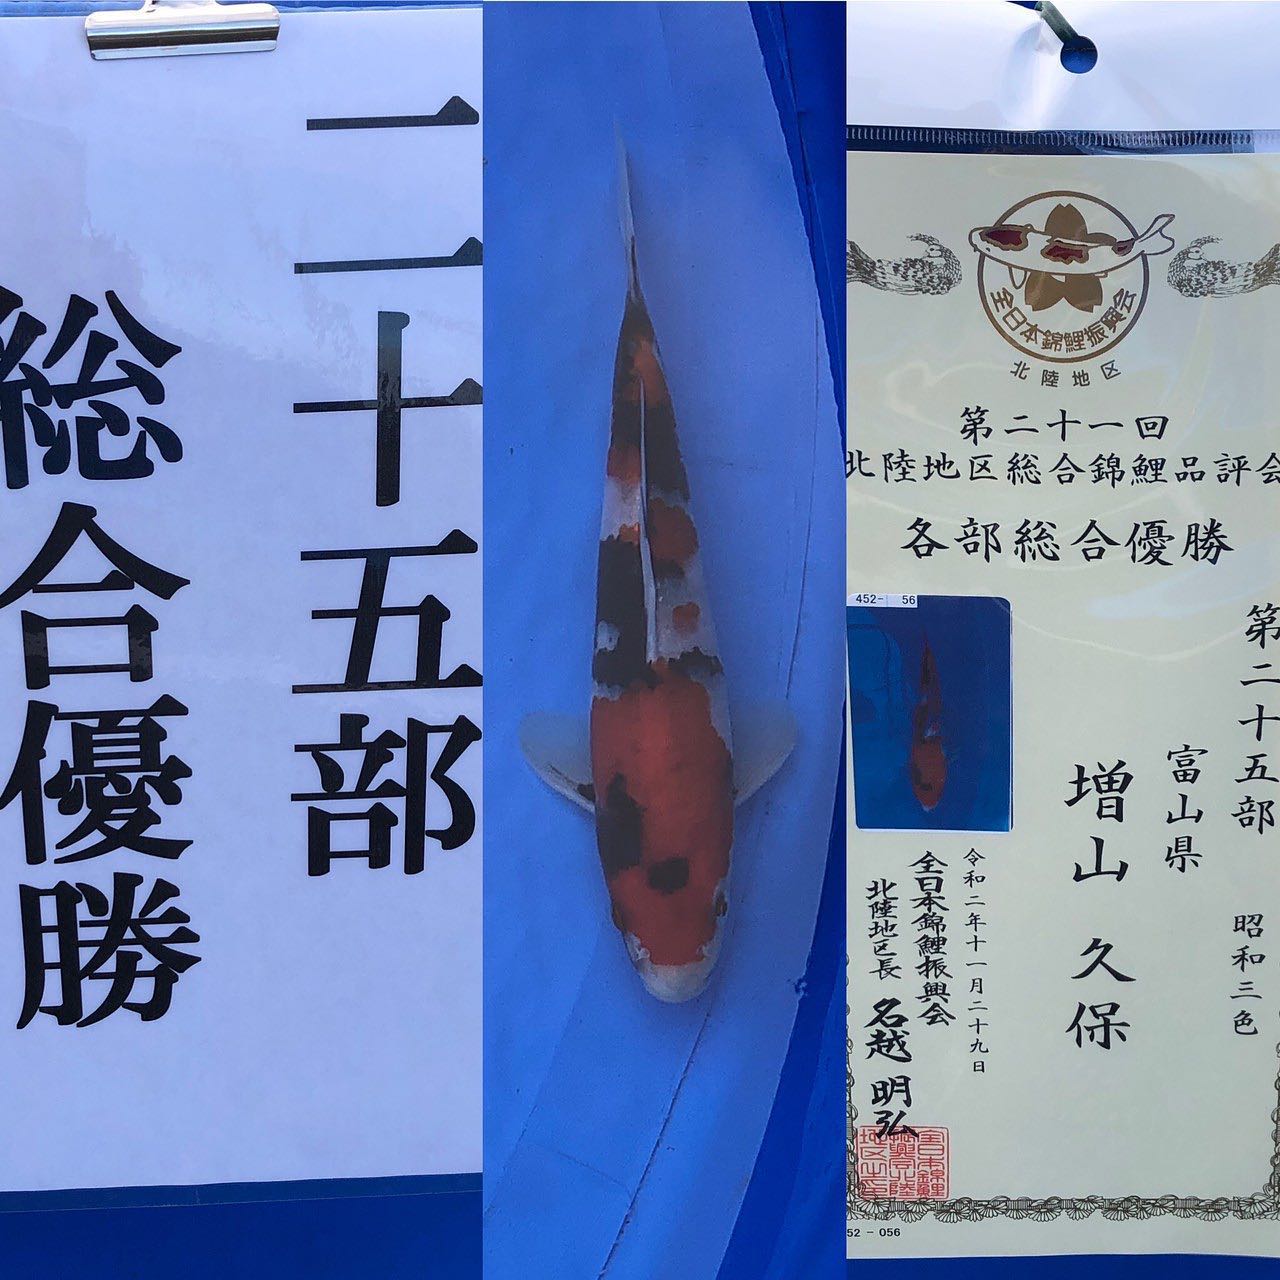 二十五部
総合優勝
全日本錦鯉振興会
北陸地区
第二十一回
北陸地区総合錦鯉品評会
各部総合優勝
452- 56
第二十五部 昭和三色
富山県
増山 久保
令和二年十一月二十九日
全日本錦鯉振興会
北陸地区長 名越 明弘
52 - 056